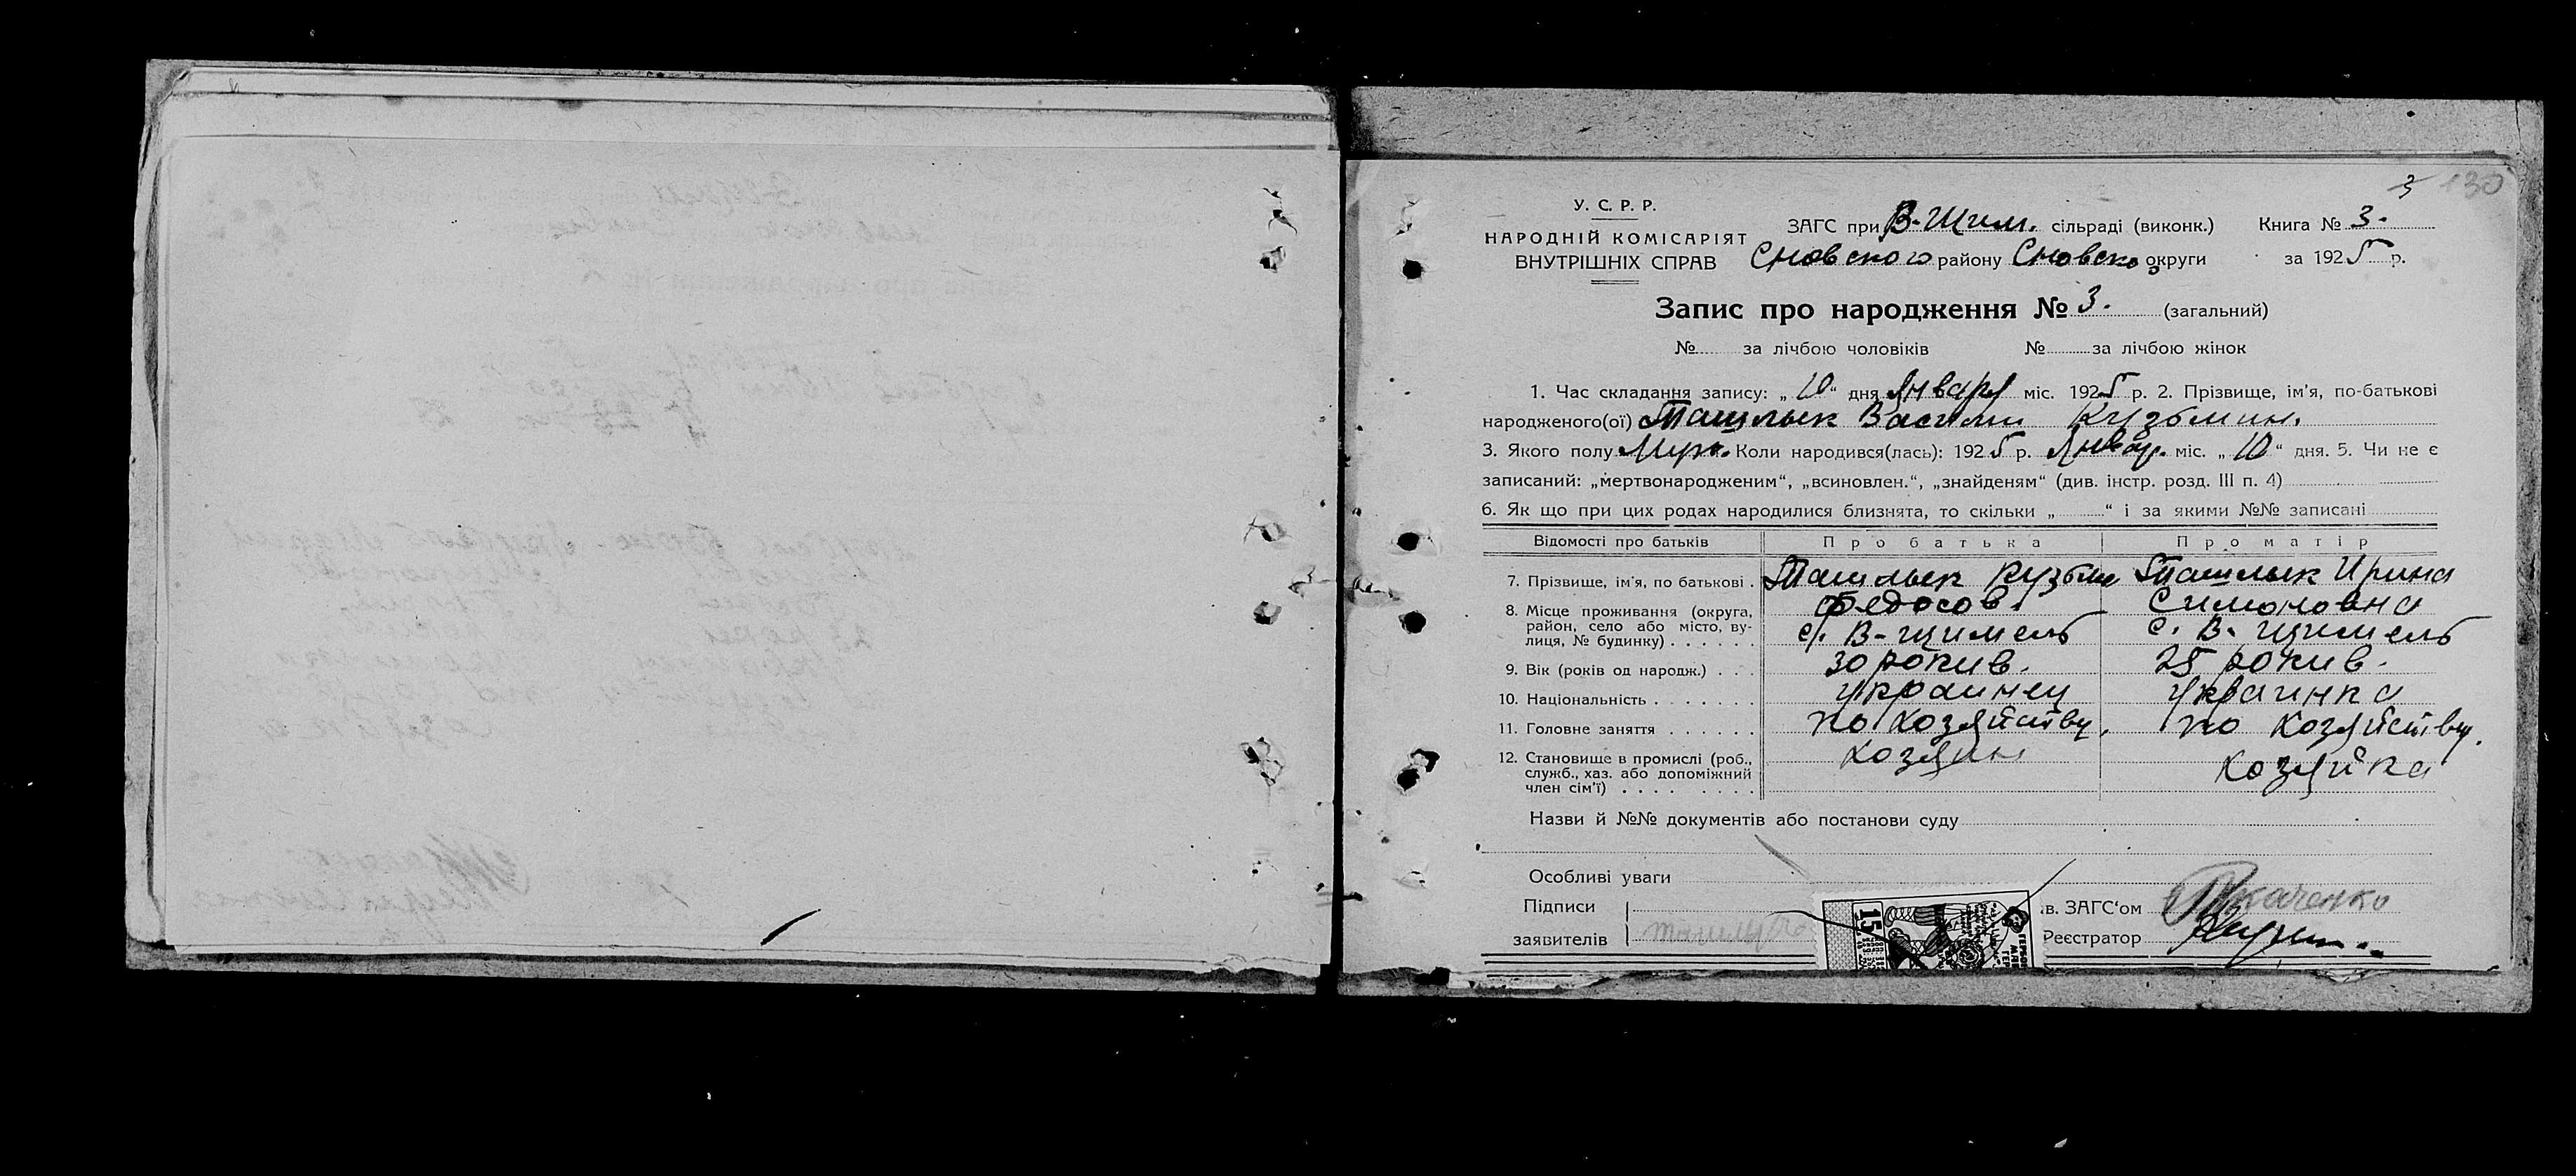 3 130
У. С. Р. Р.
НАРОДНІЙ КОМІСАРІЯТ
ВНУТРІШНІХ СПРАВ
ЗАГС при В-Щим. сільраді (виконк.) Книга № 3.
Сновского району Сновско округи за 1925 р.
Запис про народження № 3. (загальний)
№ за лічбою чоловіків № за лічбою жінок
1. Час складання запису: „10“ дня Января міс. 1925 р. 2. Прізвище, ім'я, по-батькові
народженого(ої) Ташлык Васили Кузьмин.
3. Якого полу Муж. Коли народився(лась): 1925 р. Январ. міс. „10“ дня. 5. Чи не є
записаний: „мертвонародженим“, „всиновлен.“, „знайденям“ (див. інстр. розд. III п. 4)
6. Як що при цих родах народилися близнята, то скільки „ “ і за якими №№ записані
Відомості про батьків Про батька Про матір
7. Прізвище, ім'я, по батькові . Ташлык Кузьма Ташлык Ирина
Федосов. Симоновна
8. Місце проживання (округа,
район, село або місто, ву-
лиця, № будинку) . . . . . . с. В-щимель с. В. щимель
9. Вік (років од народж.) . . . 30 рокив. 25 рокив.
10. Національність . . . . . . . украинец украинка
11. Головне заняття . . . . . . по хозяйству. по хозяйству.
12. Становище в промислі (роб.,
служб., хаз. або допоміжний
член сім'ї) . . . . . . . . хозяин хозяйка
Назви й №№ документів або постанови суду
Особливі уваги
Підписи
заявителів
15
.в. ЗАГС'ом Ткаченко
Реєстратор